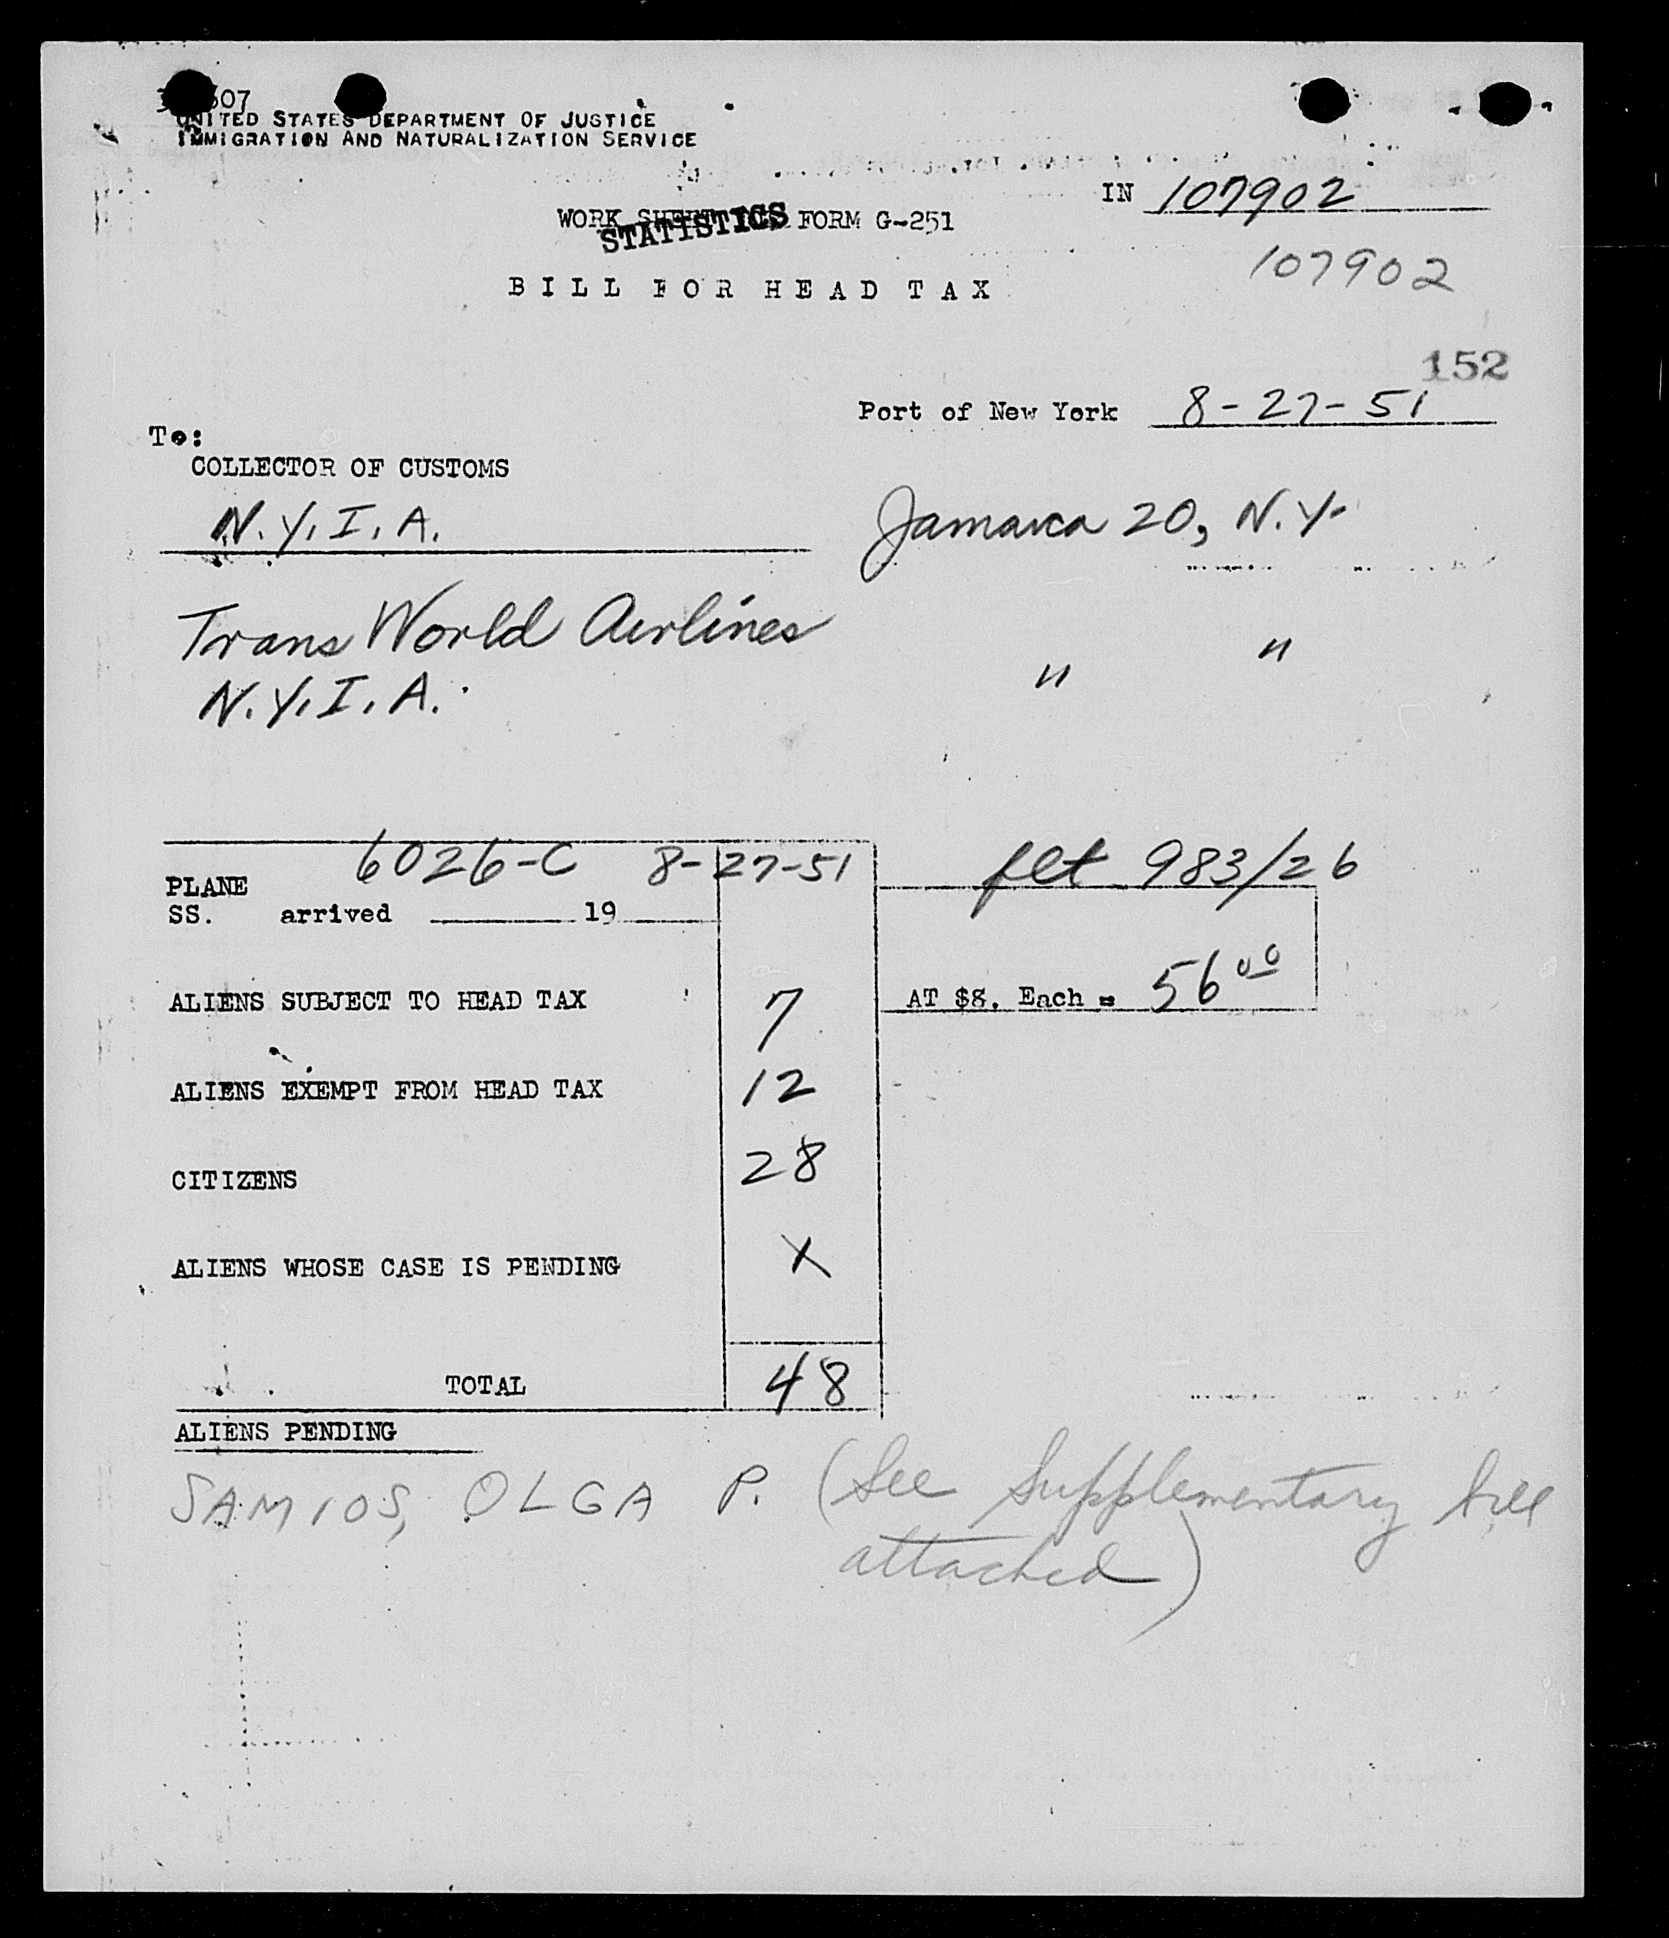 607
UNITED STATES DEPARTMENT OF JUSTICE
IMMIGRATION AND NATURALIZATION SERVICE
IN 107902
WORK SHEET FORM G-251
STATISTICS
107902
BILL FOR HEAD TAX
152
Port of New York 8-27-51
To:
COLLECTOR OF CUSTOMS
N.Y.I.A. Jamaica 20, N.Y.
Trans World Airlines " "
N.Y.I.A.
6026-C 8-27-51 flt 983/26
PLANE
SS. arrived 19
ALIENS SUBJECT TO HEAD TAX 7 AT $8. Each = 56 00
ALIENS EXEMPT FROM HEAD TAX 12
CITIZENS 28
ALIENS WHOSE CASE IS PENDING X
TOTAL 48
ALIENS PENDING
SAMIOS, OLGA P. (See Supplementary bill
attached)